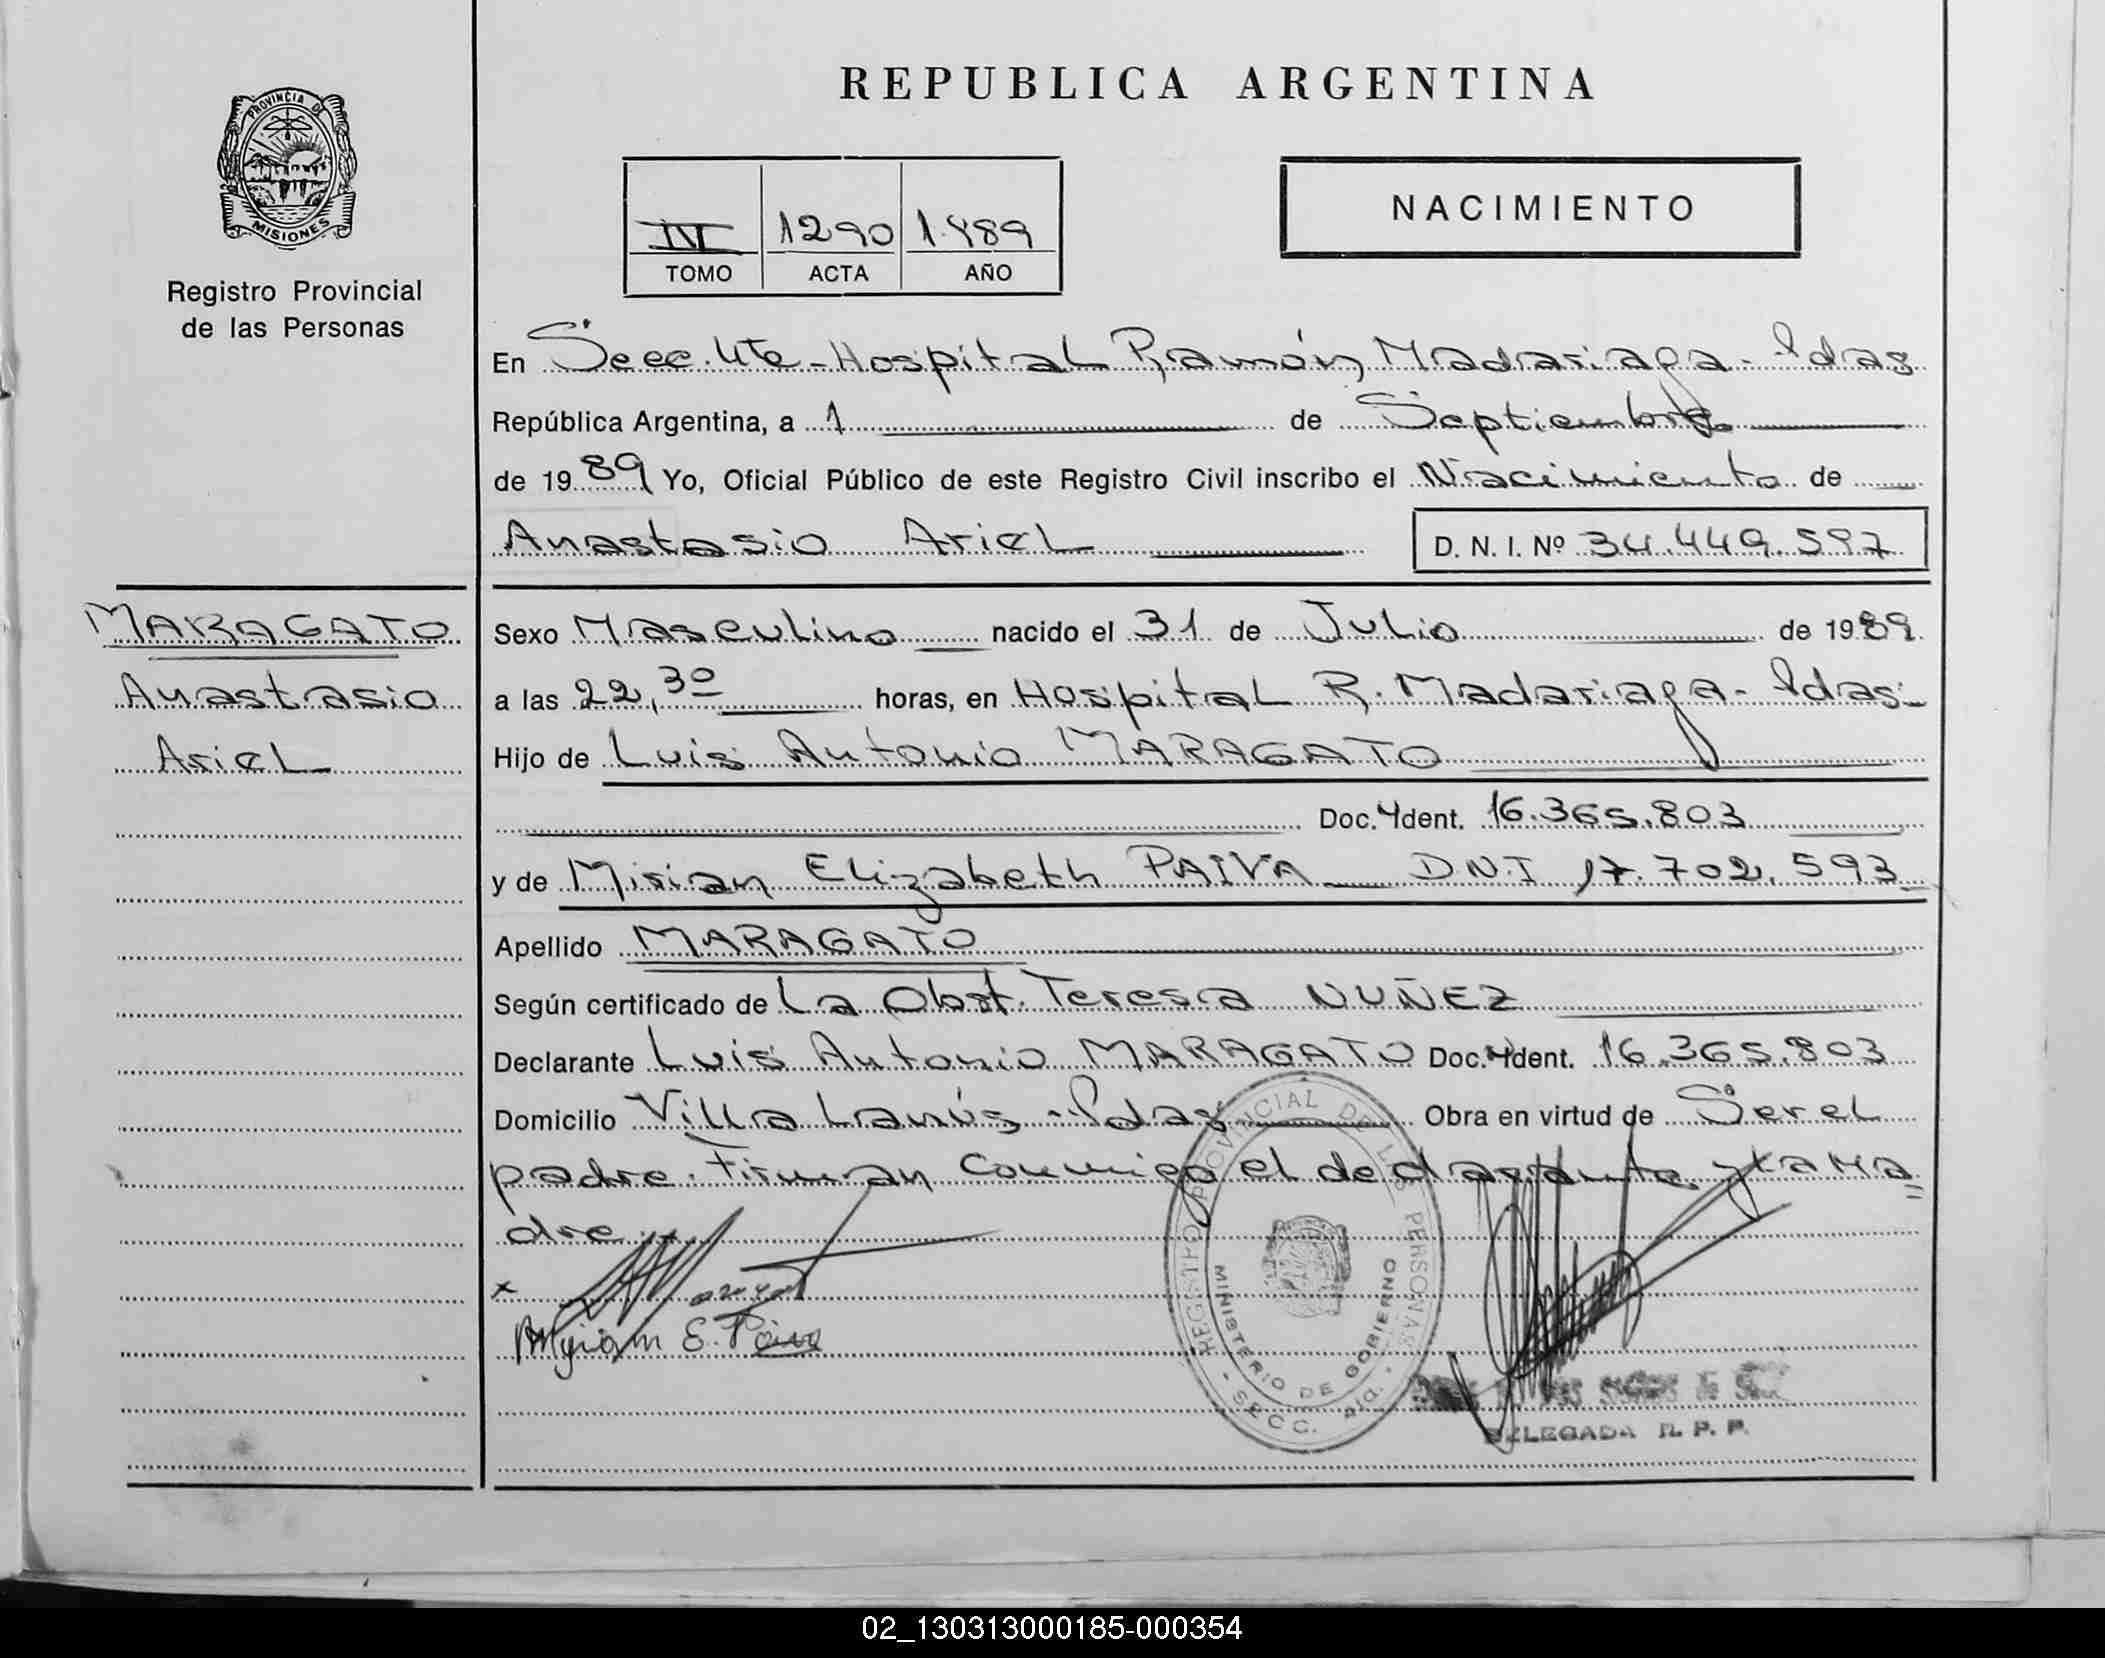 REPUBLICA ARGENTINA
PROVINCIA DE
MISIONES
Registro Provincial
de las Personas
IV 1290 1.989
TOMO ACTA AÑO
NACIMIENTO
En Secc. 4te - Hospital Ramón Madariaga - Pdas
República Argentina, a 1 de Septiembre
de 1989 Yo, Oficial Público de este Registro Civil inscribo el Nacimiento de
Anastasio Ariel D. N. I. Nº 34.449.597
MARAGATO
Anastasio
Ariel
Sexo Masculino nacido el 31 de Julio de 1989
a las 22,30 horas, en Hospital R. Madariaga - Pdas -
Hijo de Luis Antonio MARAGATO
Doc. Ident. 16.365.803
y de Mirian Elizabeth PAIVA D.N.I 17.702.593
Apellido MARAGATO
Según certificado de La Obst. Teresa NUÑEZ
Declarante Luis Antonio MARAGATO Doc. Ident. 16.365.803
Domicilio Villa Lanús - Pdas Obra en virtud de Ser el
padre. Firman conmigo el declarante y la ma
dre.
x
Myriam E. Paiva
REGISTRO PROVINCIAL DE LAS PERSONAS
MINISTERIO DE GOBIERNO
SECC.
DELEGADA R. P. P.
02_130313000185-000354